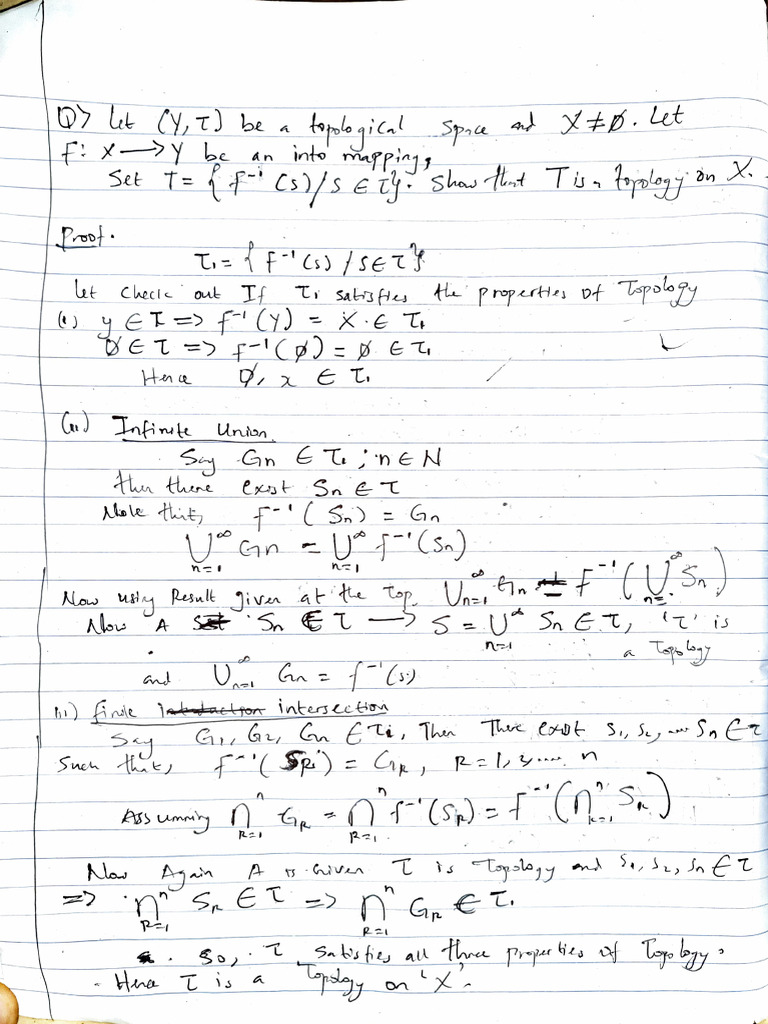 Q> Let (Y, τ) be a topological space and X ≠ ∅. Let
f: X ⟶ Y be an into mapping,
Set T = { f⁻¹(s) / s ∈ τ}. Show that T is a topology on X.
Proof.
τ₁ = { f⁻¹(s) / s ∈ τ }
Let check out If τ₁ satisfies the properties of Topology
(i) y ∈ τ ⇒ f⁻¹(Y) = X ∈ τ₁
∅ ∈ τ ⇒ f⁻¹(∅) = ∅ ∈ τ₁
Hence ∅, x ∈ τ₁
(ii) Infinite Union
Say Gn ∈ τ₁ ; n ∈ N
then there exist Sn ∈ τ
that, f⁻¹(Sn) = Gn
⋃_{n=1}^∞ Gn = ⋃_{n=1}^∞ f⁻¹(Sn)
Now using Result given at the top, ⋃_{n=1}^∞ Gn = f⁻¹(⋃_{n=1}^∞ Sn)
Now A Sn ∈ τ ⟶ S = ⋃_{n=1}^∞ Sn ∈ τ, 'τ' is
a Topology
and ⋃_{n=1}^∞ Gn = f⁻¹(s)
iii) finite intersection
Say G₁, G₂, Gn ∈ τ₁, Then There exist s₁, s₂, ... Sn ∈ τ
Such that, f⁻¹(SR) = GR, R = 1, 2, .... n
Assumming ⋂_{R=1}^n GR = ⋂_{R=1}^n f⁻¹(SR) = f⁻¹(⋂_{R=1}^n SR)
Now Again A is Given τ is Topology and s₁, s₂, sn ∈ τ
⇒ ⋂_{R=1}^n SR ∈ τ ⇒ ⋂_{R=1}^n GR ∈ τ₁
So, τ satisfies all three properties of Topology.
Hence τ is a Topology on 'X'.